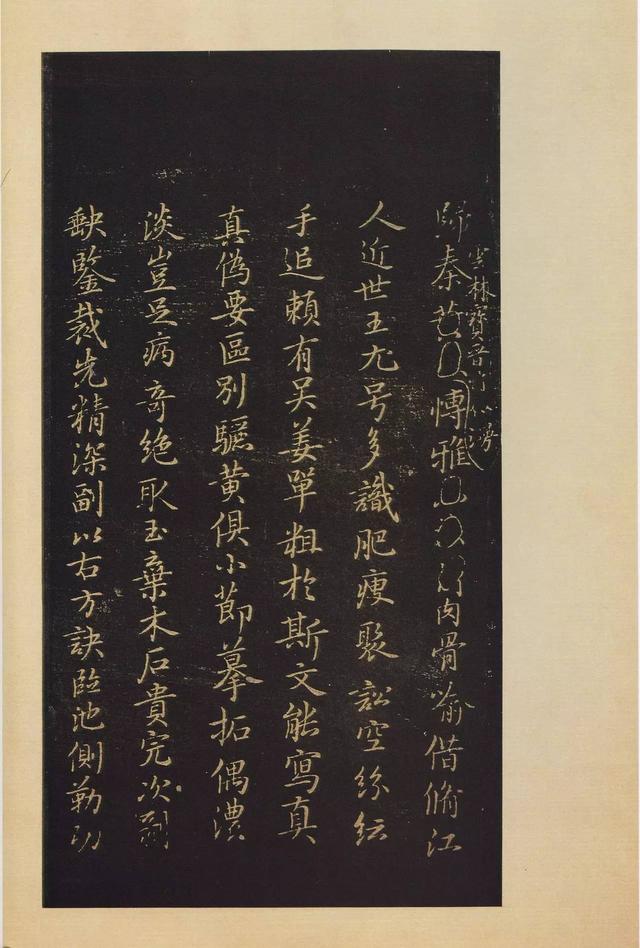 雲林寶晉
秦博雅肉骨喻借脩江
人近世王尤号多識肥瘦聚訟空紛紜
手追賴有吴姜單粗於斯文能寫真
真偽要區別驪黃俱小節摹拓偶濃
淡豈足病奇絶取玉棄木石貴完次剔
缺鑒裁先精深副以右方訣臨池側勒功